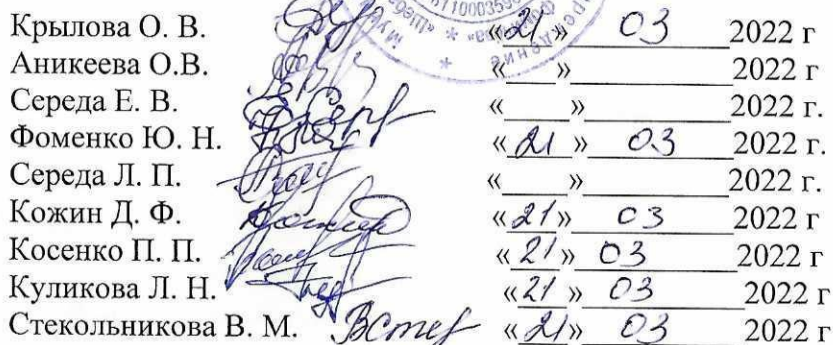 Крылова О. В. «21» 03 2022 г
Аникеева О.В. «___»________2022 г
Середа Е. В. «___»________2022 г.
Фоменко Ю. Н. «21» 03 2022 г.
Середа Л. П. «___»________2022 г.
Кожин Д. Ф. «21» 03 2022 г
Косенко П. П. «21» 03 2022 г
Куликова Л. Н. «21» 03 2022 г
Стекольникова В. М. «21» 03 2022 г